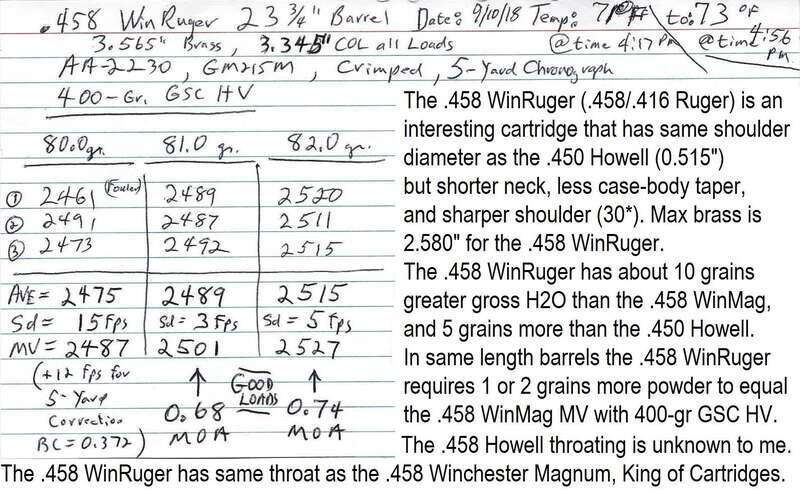 .458 WinRuger 23 3/4" Barrel Date: 9/10/18 Temp: 71°F to: 73 °F
3.565" Brass, 3.345" COL all Loads @time 4:17 PM @time 4:56 PM
AA-2230, GM215M, Crimped, 5-Yard Chronograph
400-Gr. GSC HV
80.0gr. 81.0 gr. 82.0 gr.
① 2461 (Fouler) 2489 2520
② 2491 2487 2511
③ 2473 2492 2515
AVE = 2475 2489 2515
Sd = 15 fps Sd = 3 Fps Sd = 5 fps
MV = 2487 2501 2527
(+12 fps for
5-Yard
Correction
BC = 0.372)
↑ GOOD LOADS ↑
0.68 0.74
MOA MOA
The .458 WinRuger (.458/.416 Ruger) is an
interesting cartridge that has same shoulder
diameter as the .450 Howell (0.515")
but shorter neck, less case-body taper,
and sharper shoulder (30*). Max brass is
2.580" for the .458 WinRuger.
The .458 WinRuger has about 10 grains
greater gross H2O than the .458 WinMag,
and 5 grains more than the .450 Howell.
In same length barrels the .458 WinRuger
requires 1 or 2 grains more powder to equal
the .458 WinMag MV with 400-gr GSC HV.
The .458 Howell throating is unknown to me.
The .458 WinRuger has same throat as the .458 Winchester Magnum, King of Cartridges.